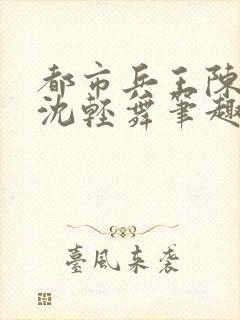 都市兵王陳
沈輕舞筆趣
臺風來襲